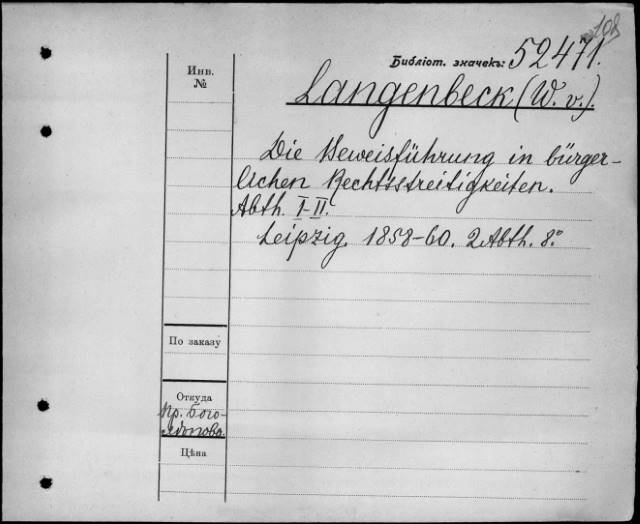 108
Библіот. значекъ: 52471.
Инв.
№
Langenbeck (W. v.).
Die Beweisführung in bürger-
lichen Rechtsstreitigkeiten.
Abth. I-II.
Leipzig. 1858-60. 2 Abth. 8.°
По заказу
Откуда
Пр. Бого-
лѣпова
Цѣна